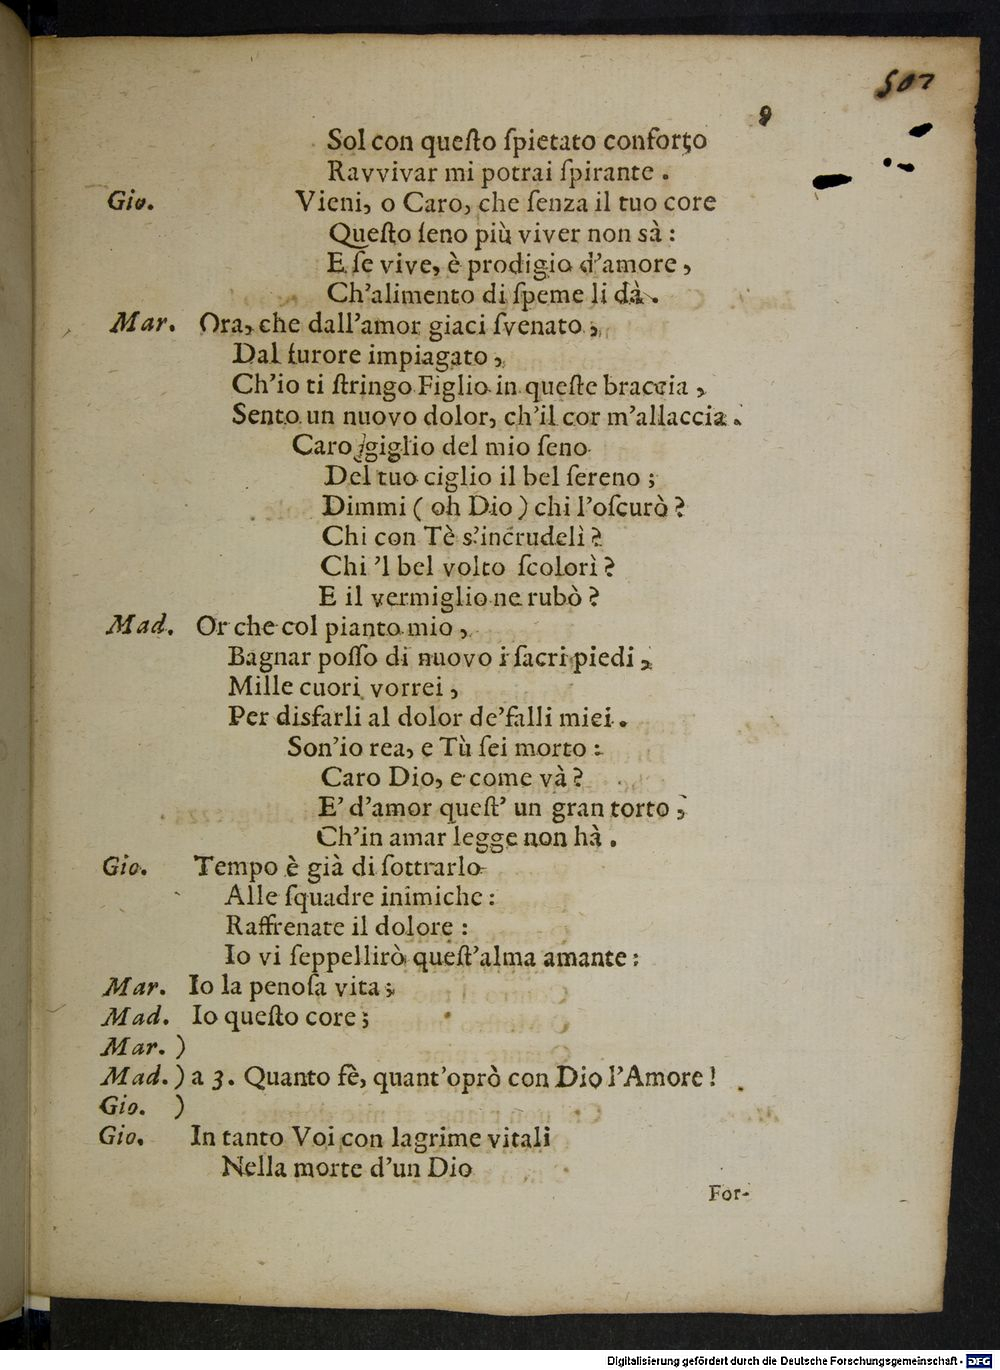 507
9
Sol con queſto ſpietato conforto
Ravvivar mi potrai ſpirante .
Gio. Vieni, o Caro, che ſenza il tuo core
Queſto ſeno più viver non sà :
E ſe vive, è prodigio d'amore ,
Ch'alimento di ſpeme li dà .
Mar. Ora, che dall'amor giaci ſvenato ,
Dal furore impiagato ,
Ch'io ti ſtringo Figlio in queſte braccia ,
Sento un nuovo dolor, ch'il cor m'allaccia .
Caro giglio del mio ſeno
Del tuo ciglio il bel ſereno ;
Dimmi ( oh Dio ) chi l'oſcurò ?
Chi con Tè s'incrudelì ?
Chi 'l bel volto ſcolorì ?
E il vermiglio ne rubò ?
Mad. Or che col pianto mio ,
Bagnar poſſo di nuovo i ſacri piedi ,
Mille cuori vorrei ,
Per disfarli al dolor de'falli miei .
Son'io rea, e Tù ſei morto :
Caro Dio, e come và ?
E' d'amor queſt' un gran torto ;
Ch'in amar legge non hà .
Gio. Tempo è già di ſottrarlo
Alle ſquadre inimiche :
Raffrenate il dolore :
Io vi ſeppellirò queſt'alma amante :
Mar. Io la penoſa vita ;
Mad. Io queſto core ;
Mar. )
Mad. ) a 3. Quanto fè, quant'oprò con Dio l'Amore !
Gio. )
Gio. In tanto Voi con lagrime vitali
Nella morte d'un Dio
For-
Digitalisierung gefördert durch die Deutsche Forschungsgemeinschaft - DFG